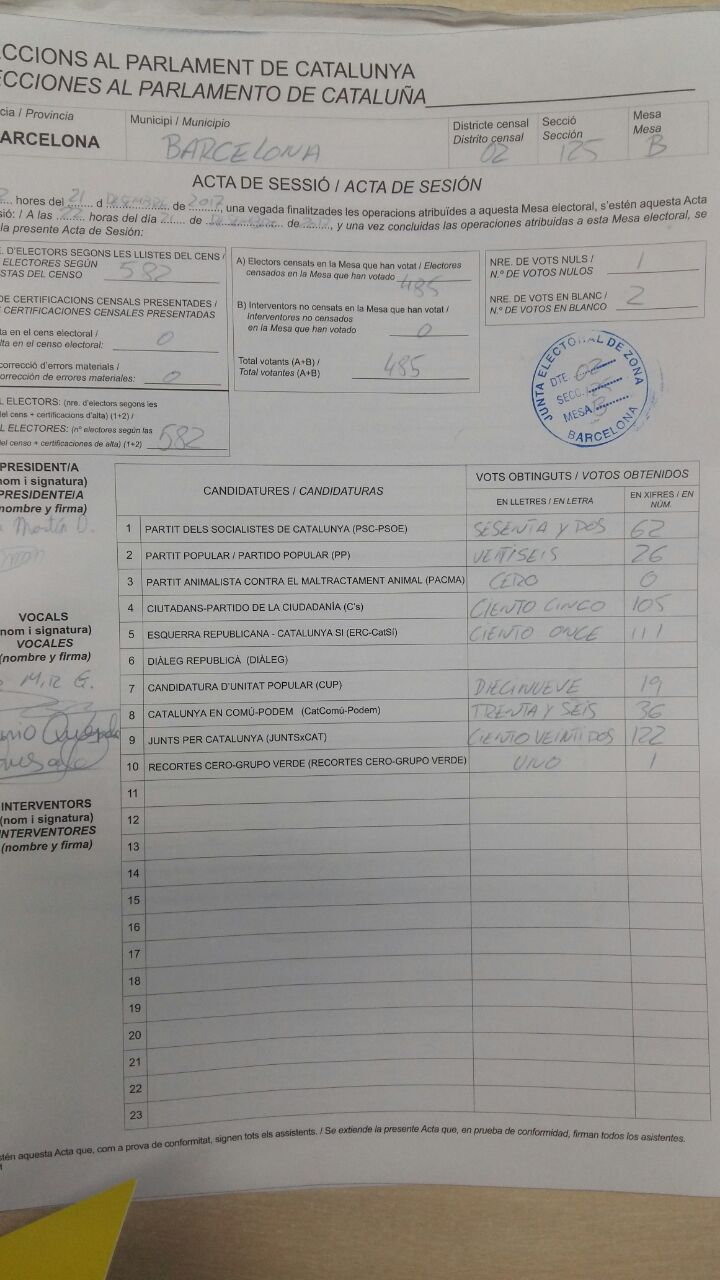 CCIONS AL PARLAMENT DE CATALUNYA
CCIONES AL PARLAMENTO DE CATALUÑA
cia / Provincia
ARCELONA
Municipi / Municipio
BARCELONA
Districte censal
Distrito censal
02
Secció
Sección
125
Mesa
Mesa
B
ACTA DE SESSIÓ / ACTA DE SESIÓN
hores del 21 d DESEMBRE de 2017, una vegada finalitzades les operacions atribuïdes a aquesta Mesa electoral, s'estén aquesta Acta
sió: / A las 22 horas del día 21 de de 2017, y una vez concluidas las operaciones atribuidas a esta Mesa electoral, se
la presente Acta de Sesión:
. D'ELECTORS SEGONS LES LLISTES DEL CENS /
ELECTORES SEGÚN
STAS DEL CENSO 582
DE CERTIFICACIONS CENSALS PRESENTADES /
CERTIFICACIONES CENSALES PRESENTADAS
ta en el cens electoral /
lta en el censo electoral: 0
correcció d'errors materials /
orrección de errores materiales: 0
L ELECTORS: (nre. d'electors segons les
del cens + certificacions d'alta) (1+2) /
L ELECTORES: (nº electores según las
del censo + certificaciones de alta) (1+2) 582
A) Electors censats en la Mesa que han votat / Electores
censados en la Mesa que han votado 485
B) Interventors no censats en la Mesa que han votat /
Interventores no censados
en la Mesa que han votado 0
Total votants (A+B) /
Total votantes (A+B) 485
NRE. DE VOTS NULS /
N.º DE VOTOS NULOS 1
NRE. DE VOTS EN BLANC /
N.º DE VOTOS EN BLANCO 2
JUNTA ELECTORAL DE ZONA
DTE. 02
SECC. 125
MESA B
BARCELONA
PRESIDENT/A
nom i signatura)
PRESIDENTE/A
nombre y firma)
Martín D.
VOCALS
(nom i signatura)
VOCALES
(nombre y firma)
INTERVENTORS
(nom i signatura)
INTERVENTORES
(nombre y firma)
CANDIDATURES / CANDIDATURAS
VOTS OBTINGUTS / VOTOS OBTENIDOS
EN LLETRES / EN LETRA
EN XIFRES / EN NÚM.
1 PARTIT DELS SOCIALISTES DE CATALUNYA (PSC-PSOE) SESENTA Y DOS 62
2 PARTIT POPULAR / PARTIDO POPULAR (PP) VEITISEIS 26
3 PARTIT ANIMALISTA CONTRA EL MALTRACTAMENT ANIMAL (PACMA) CERO 0
4 CIUTADANS-PARTIDO DE LA CIUDADANÍA (C's) CIENTO CINCO 105
5 ESQUERRA REPUBLICANA - CATALUNYA SI (ERC-CatSí) CIENTO ONCE 111
6 DIÀLEG REPUBLICÀ (DIÀLEG)
7 CANDIDATURA D'UNITAT POPULAR (CUP) DIECINUEVE 19
8 CATALUNYA EN COMÚ-PODEM (CatComú-Podem) TRENTA Y SEIS 36
9 JUNTS PER CATALUNYA (JUNTSxCAT) CIENTO VEINTIDOS 122
10 RECORTES CERO-GRUPO VERDE (RECORTES CERO-GRUPO VERDE) UNO 1
11
12
13
14
15
16
17
18
19
20
21
22
23
stén aquesta Acta que, com a prova de conformitat, signen tots els assistents. / Se extiende la presente Acta que, en prueba de conformidad, firman todos los asistentes.